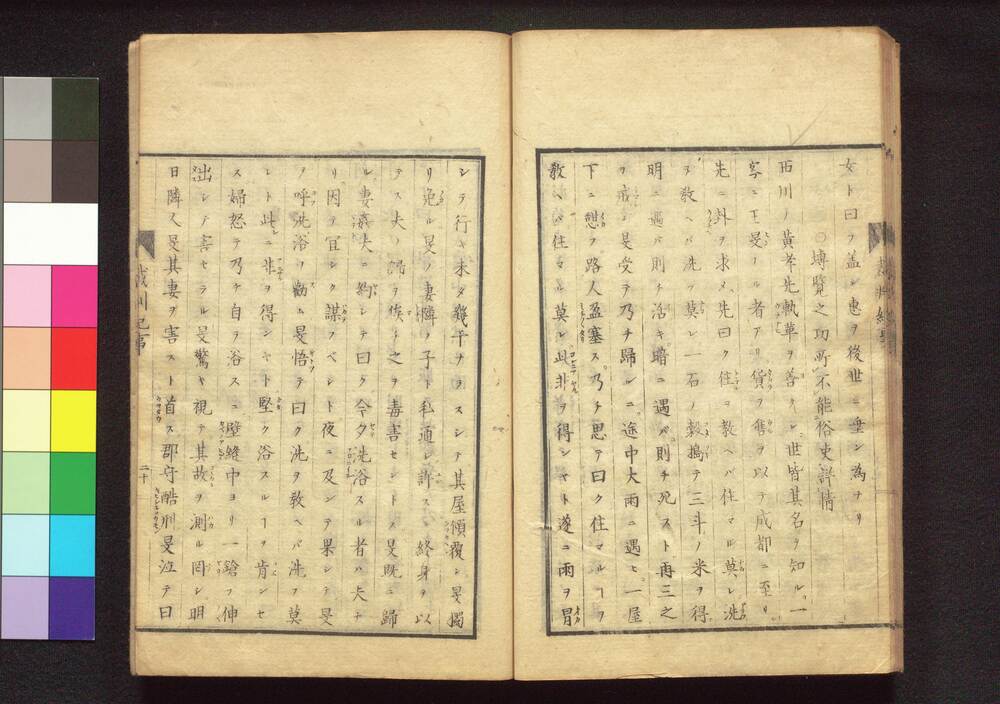 女ト曰フ蓋シ惠ヲ後世ニ垂ン為ナリ
○博覽之功所不能俗吏詳情
西川ノ黃孝先軌革ヲ善クシ世皆其名ヲ知ル一
客ニ王旻ナル者アリ貨ヲ售ヲ以テ成都ニ至リ
先ニ卦ヲ求メ先曰ク住ヲ教ヘバ住マル莫レ洗
ヲ教ヘバ洗フ莫レ一石ノ穀搗テ三斗ノ米ヲ得
明ニ遇バ則チ活キ暗ニ遇バ則チ死スト再三之
ヲ戒シ旻受テ乃チ歸シニ途中大雨ニ遇ヒ一屋
下ニ憩フ路人盈塞ス乃チ思テ曰ク住マルヿヲ
教ヘバ住マル莫レ此非ヲ得シヤト遂ニ雨ヲ冒
シテ行キ未タ幾干ナラスシテ其屋傾覆シ旻獨
リ免ル旻ノ妻隣ノ子ト私通シ許ス終身ヲ以
テス夫ノ歸ヲ俟チ之ヲ毒害セントス旻既ニ歸
ル妻夫ニ約シテ曰ク今夕洗浴スル者ハ夫ナ
リ因テ宜シク謀フベシト夜ニ及ンテ果シテ旻
ヲ呼洗浴ヲ勸ム旻悟テ曰ク洗ヲ教ヘバ洗フ莫
レト此ニ非ヲ得シヤト堅ク浴スルヿヲ肯ンセ
ス婦怒テ乃チ自ラ浴スニ壁縫中ヨリ一鎗ヲ伸
出シテ害セラル旻驚キ視テ其故ヲ測ル罔シ明
日隣人旻其妻ヲ害スト首ス郡守酷刑旻泣テ曰
裁判紀事
二十